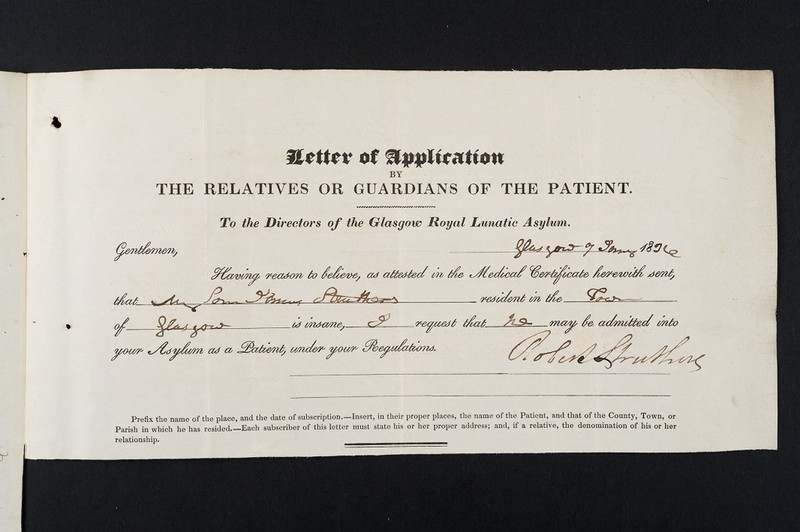 Letter of Application
BY
THE RELATIVES OR GUARDIANS OF THE PATIENT.
To the Directors of the Glasgow Royal Lunatic Asylum.
Gentlemen, Glasgow 7 1836
Having reason to believe, as attested in the Medical Certificate herewith sent,
that My Son Struthers resident in the Town
of Glasgow is insane, I request that he may be admitted into
your Asylum as a Patient, under your Regulations. Robert Struthers
Prefix the name of the place, and the date of subscription.—Insert, in their proper places, the name of the Patient, and that of the County, Town, or
Parish in which he has resided.—Each subscriber of this letter must state his or her proper address; and, if a relative, the denomination of his or her
relationship.